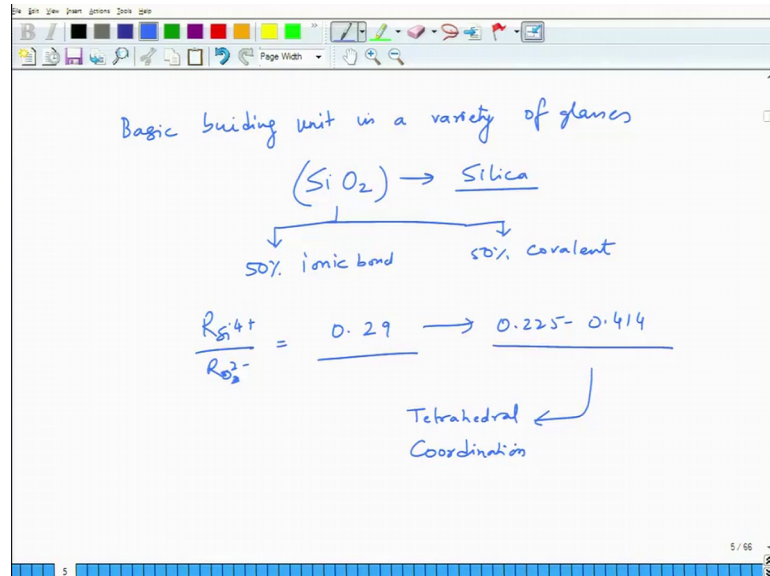 File Edit View Insert Actions Tools Help
B I
Page Width
Basic buiding unit in a variety of glasses
(SiO2) → Silica
50% ionic bond
50% Covalent
RSi4+ / RO2- = 0.29 → 0.225 - 0.414
Tetrahedral
Coordination
5 / 66
5